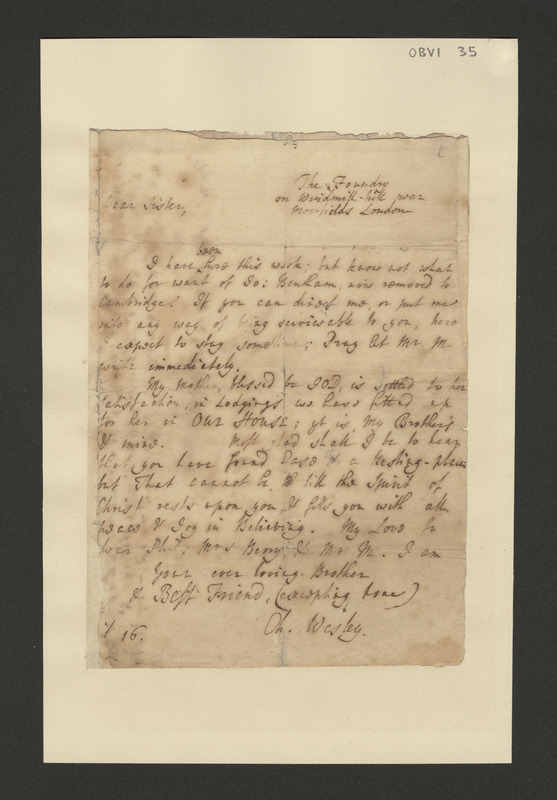 OBVI 35
The Foundry
on Windmill-hill near
Moorfields London
Dear Sister,
been
I have here this week; but know not what
to do for want of Jo: Benham, now removed to
Cambridge. If you can direct me, or put me
into any way of being serviceable to you, here
I expect to stay sometime; Pray let Mr M.
write immediately.
My Mother, blessed be GOD, is settled to her
satisfaction, in Lodgings we have fitted up
for her in Our House; yt is, My Brother's
& mine. Most glad shall I be to hear
that you have found Ease & a Resting-place
but That cannot be, till the Spirit of
Christ rests upon you, & fills you with all
peace & Joy in Believing. My Love to
dear , Mrs Berry, & Mr M. I am
Your ever loving Brother
& Best Friend, (excepting None)
16.
Ch. Wesley.